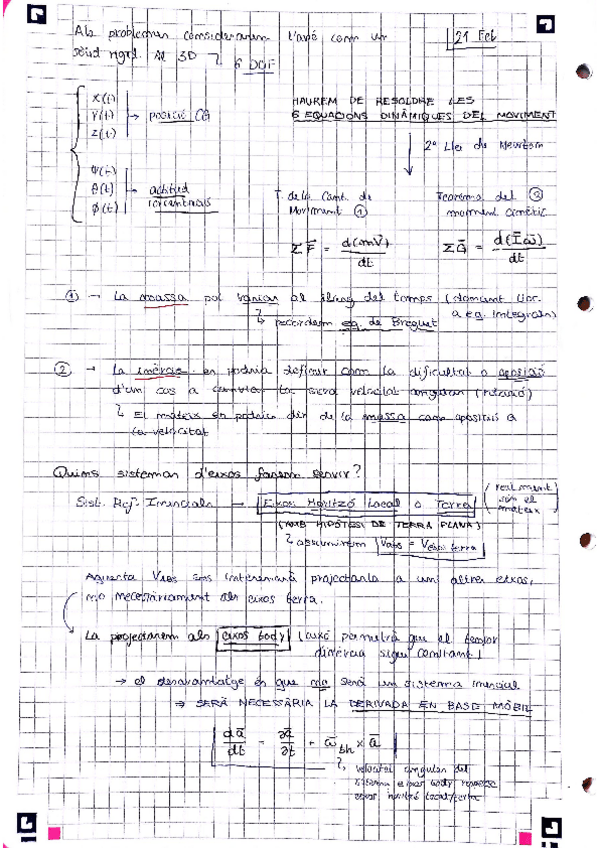 Als problemes considerarem l'avió com un
sòlid rígid. Al 3D → 6 DOF
21 Feb
x(t)
y(t) → posició CG
z(t)
ψ(t)
θ(t) → actitud
ϕ(t) orientació
HAUREM DE RESOLDRE LES
6 EQUACIONS DINÀMIQUES DEL MOVIMENT
2ª Llei de Newton
T. de la Cant. de
Moviment ①
Σ F̄ = d(mV̄)/dt
Teorema del ②
moment cinètic
Σ Ḡ = d(Īω̄)/dt
① → La massa pot variar al llarg del temps (donant lloc
a eq. integrals)
↳ recordem eq. de Breguet
② → La inèrcia es podria definir com la dificultat o oposició
d'un cos a canviar la seva velocitat angular (rotació)
↳ El mateix es podria dir de la massa com oposició a
la velocitat
Quins sistemes d'eixos farem servir?
Sist. Ref. Inercials → Eixos Horitzó Local o Terra
(realment són el mateix)
(AMB HIPÒTESI DE TERRA PLANA)
↳ assumirem Vabs = Vresp. terra
Aquesta Vabs ens interessarà projectarla a uns altres eixos,
no necessàriament als eixos terra.
La projectarem als eixos body (això permetrà que el tensor
d'inèrcia sigui constant)
→ el desavantatge és que no serà un sistema inercial
⇒ SERÀ NECESSÀRIA LA DERIVADA EN BASE MÒBIL
dā/dt = ∂ā/∂t + ω̄bh × ā
↳ velocitat angular del
sistema eixos body respecte
eixos horitzó local/terra